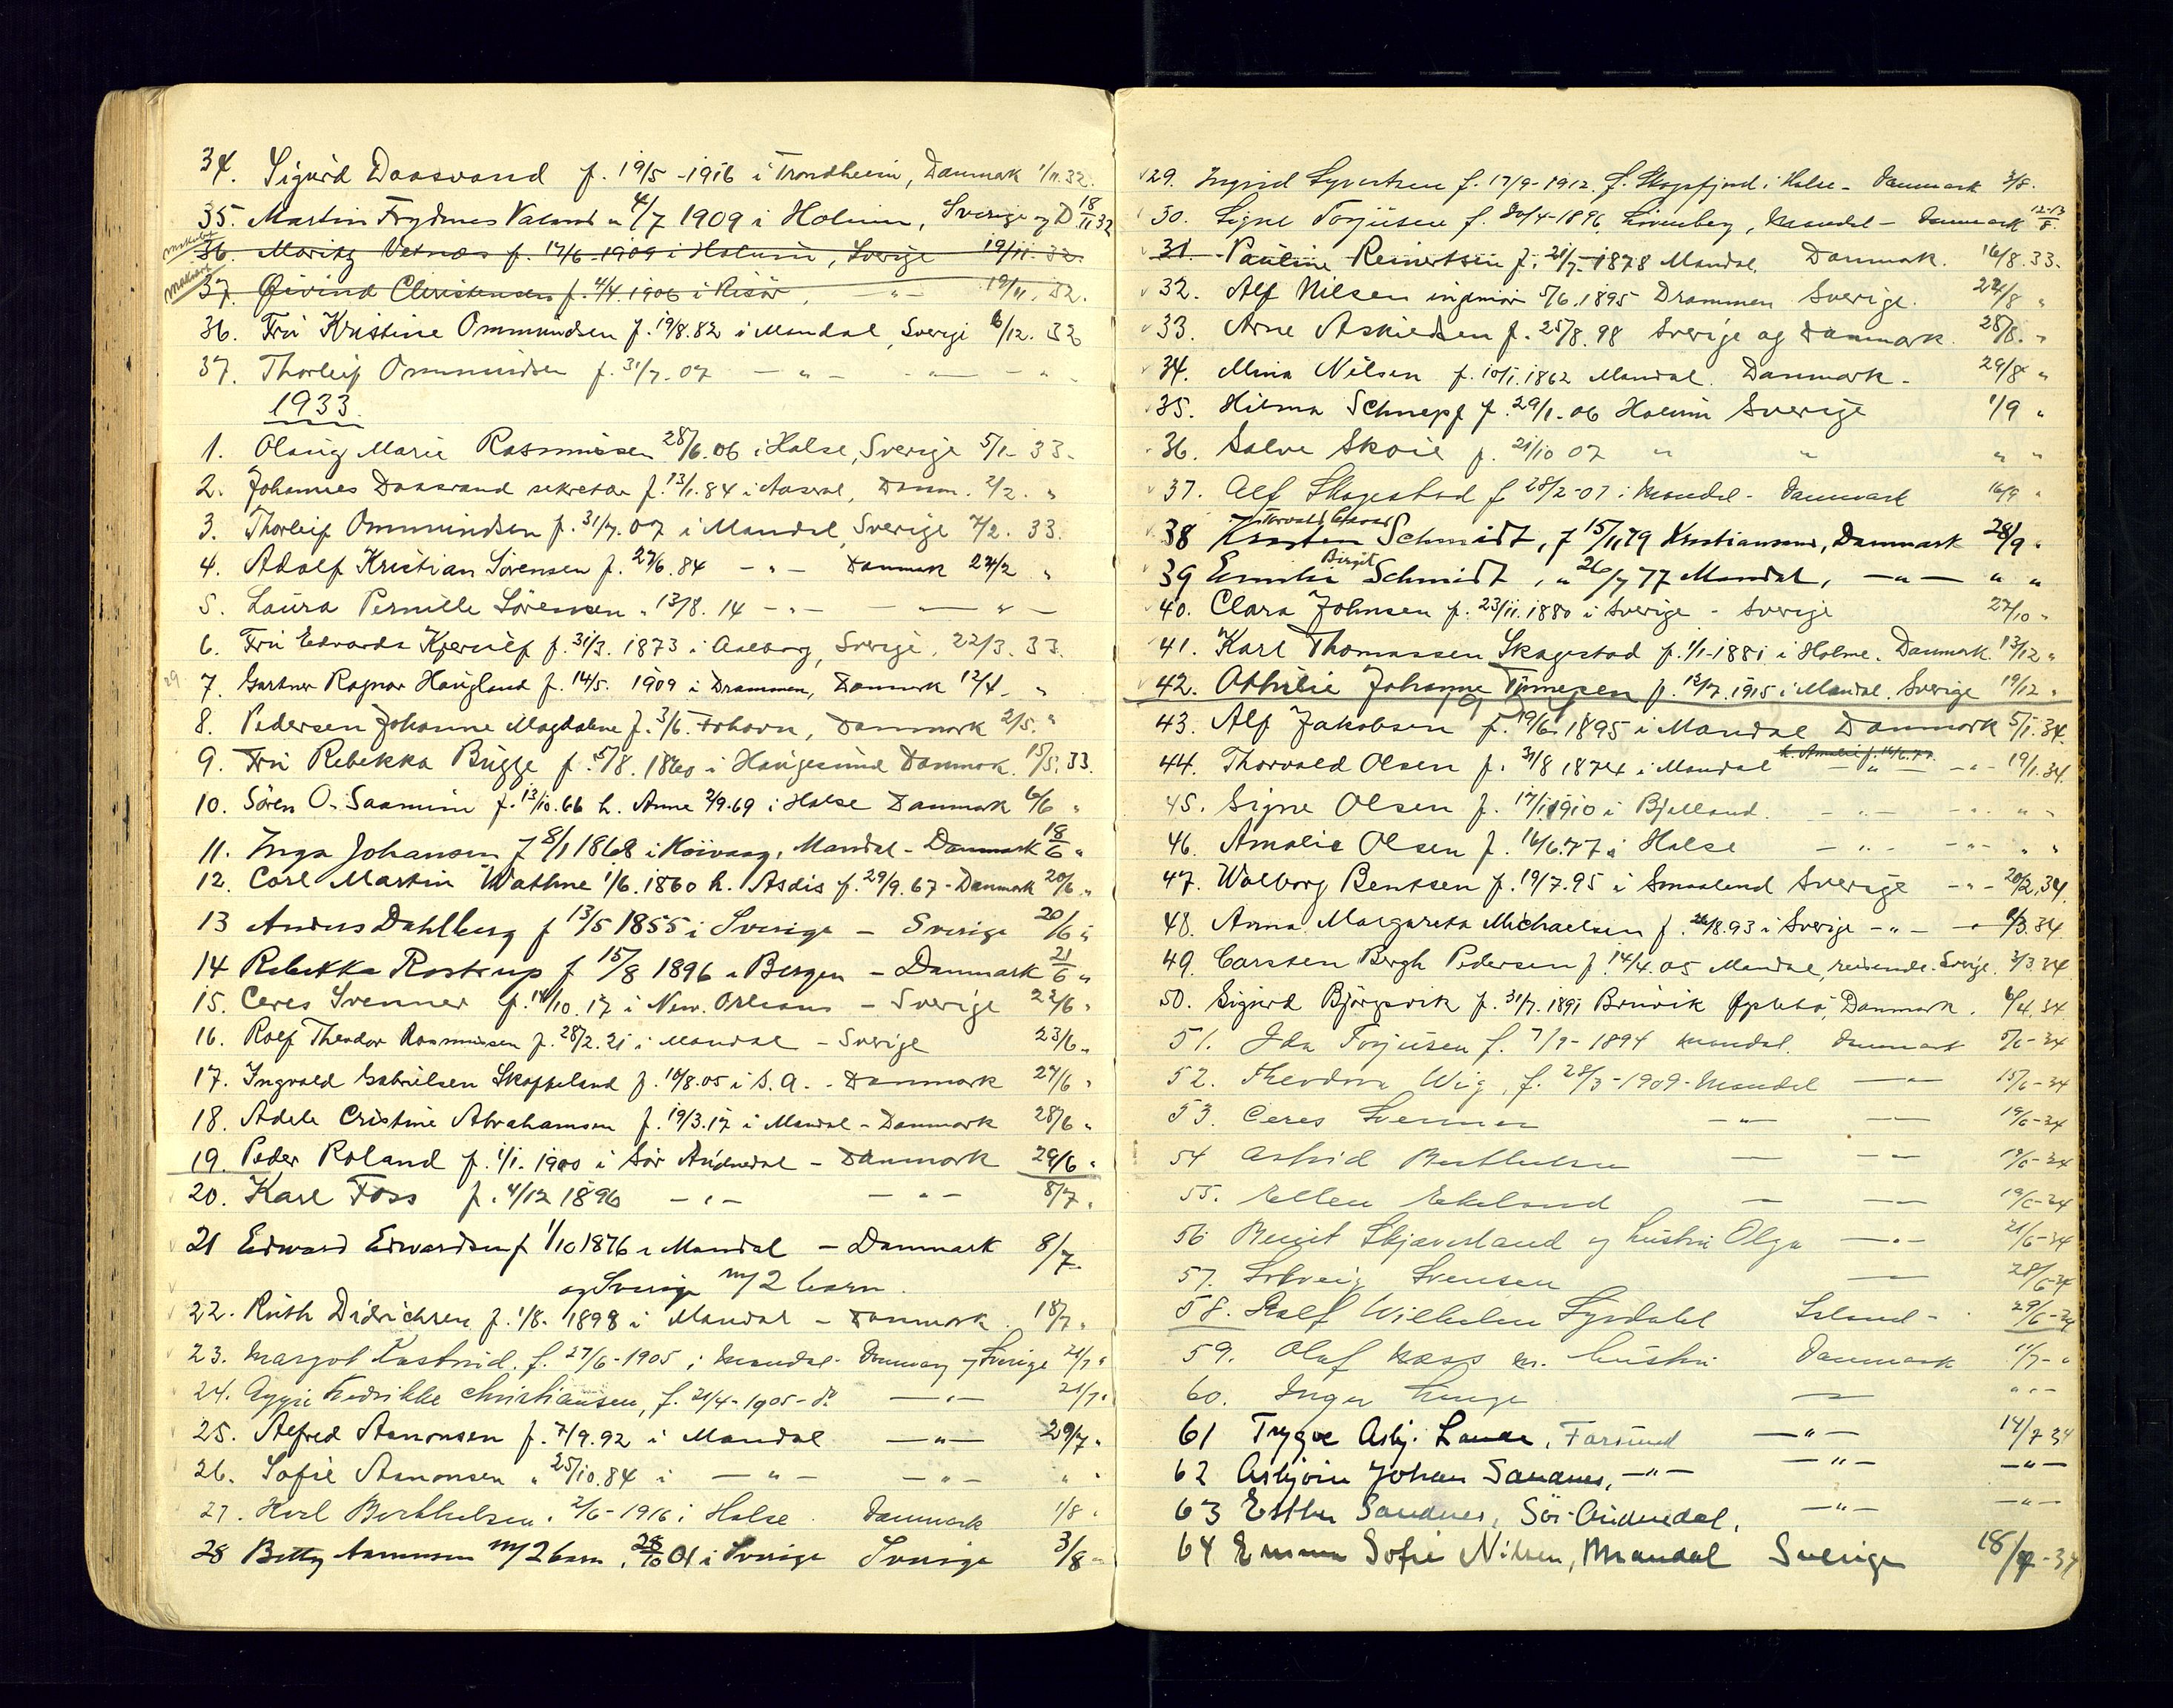 34. Sigurd Daasvand f. 19/5-1916 i Trondheim, Danmark 1/11.32.
35. Martin Frydnes Valand " 4/7 1909 i Holum, Sverige og D 18/11 32
36. Moritz Vetnæs f. 17/6 1909 i Holum, Sverige 19/11.32.
37. Øivind Christensen f. 4/4.1906 i Risör, - " - 19/11.32.
36. Fru Kristine Ommundsen f. 19/8.82 i Mandal, Sverige 6/12.32
37. Thorleif Ommundsen f. 31/7.07 - " - - " - - " -
1933.
1. Olaug Marie Rasmussen 28/6.06 i Halse, Sverige 5/1-33.
2. Johannes Daasvand sekretær f. 13/1.84 i Aaseral, Danm. 2/2. "
3. Thorleif Ommundsen f. 31/7.07 i Mandal, Sverige 7/2. 33.
4. Adolf Kristian Sörensen f. 27/6.84 - " - Danmark 24/2 "
5. Laura Pernille Sörensen " 13/8.14 - " - - " -
6. Fru Edvarda Kjerulf f. 31/3.1873 i Aalborg, Sverige, 22/3.33.
7. Gartner Ragnar Haugland f. 14/5. 1909 i Drammen, Danmark 12/4. "
8. Pedersen Johanne Magdalene f. 3/6. , Danmark 2/5. "
9. Fru Rebekka Bugge f. 5/8.1860 i Haugesund Danmark. 15/5.33.
10. Sören O. Saanum f. 13/10.66 h. Anne 2/9.69 i Halse Danmark 6/6 "
11. Inga Johansen f 8/1 1868 i , Mandal - Danmark 18/6 "
12. Carl Martin Wathne 1/6.1860 h. Asdis f. 29/9.67 - Danmark 20/6 "
13 Anders Dahlberg f 13/5 1855 i Sverige - Sverige 20/6 "
14 Rebekka Rostrup f 15/8 1896 i Bergen - Danmark 21/6 "
15. Ceres Svenner f. 14/10.17 i New Orleans - Sverige 22/6 "
16. Rolf Theodor Rasmussen f. 28/2.21 i Mandal - Sverige 23/6 "
17. Ingvald Gabrielsen Skoffeland f. 10/8.05 i S.A. - Danmark 27/6 "
18. Adele Cristine Abrahamsen f. 19/3.17 i Mandal - Danmark 28/6 "
19. Peder Roland f. 1/1. 1900 i Sör Audnedal - Danmark 29/6 "
20. Karl Foss f. 4/12 1896 - " - - " - 8/7 "
21 Edward Edwardsen f 1/10 1876 i Mandal - Danmark 8/7
og Sverige m/2 barn.
22. Ruth Didrichsen f. 1/8. 1898 i Mandal - Danmark 18/7 "
23. Margot Kastrud. f. 27/6-1905 i Mandal - Danmark og Sverige 21/7 "
24. Fredrikke Christiansen, f. 21/4-1905 - do - " - 21/7 "
25. Alfred Aanonsen f. 7/9.92 i Mandal - " - 29/7 "
26. Sofie Aanonsen " 25/10.84 i - " - - " - " "
27. Karl Berthelsen. 2/6-1916 i Halse. Danmark 1/8 "
28 Betty Aanonsen m/2 barn, 28/10 01 i Sverige Sverige 3/8 "
29. Ingrid Syvertsen f. 17/9-1912. f. Skogsfjord i Halse - Danmark 3/8.
30. Signe Torjusen f. 20/4-1896, , Mandal - Danmark 12-13/8.
31. Pauline Reinertsen f. 21/7-1878 Mandal. Danmark. 16/8.33.
32. Alf Nilsen ingeniör 5/6.1895 Drammen Sverige. 22/8 "
33. Arne Askildsen f. 25/8.98 Sverige og Danmark. 28/8. "
34. Mina Nilsen f. 10/1.1862 Mandal. Danmark. 29/8 "
35. Hilma Schnepf f. 29/1.06 Holum Sverige 1/9 "
36. Salve Skoie f. 21/10 07 " " " "
37. Alf Skagestad f. 28/2-07 i Mandal - Danmark 16/9 "
38 Karsten Schmidt, f 15/11 79 Kristiansund, Danmark 28/9 "
39 Birgit Schmidt, " 26/7 77 Mandal, - " - " "
40. Clara Johnsen f. 23/11.1880 i Sverige - Sverige 27/10 "
41. Karl Thomassen Skagestad f. 1/1-1881 i Holme. Danmark. 13/12 "
42. Othilie Johanne Tönnesen f. 12/7.1915 i Mandal. Sverige 19/12 "
43. Alf Jakobsen f. 19/6 1895 i Mandal Danmark 5/1.34.
h. Amalie f. 16/6.77.
44. Thorvald Olsen f. 31/8 1874 i Mandal - " - - " - 19/1.34.
45. Signe Olsen f. 17/1 1910 i Bjelland. - " - - " - " -
46. Amalie Olsen f. 16/6.77 i Halse - " - - " - " "
47. Walborg Bentsen f. 19/7.95 i Smaaland Sverige - " - 20/2.34.
48. Anna Margareta Michaelsen f. 26/8.93 i Sverige - " - - " 1/3.34.
49. Carsten Bergh Pedersen f. 14/4.05 Mandal, reisende. Sverige. 3/3.34.
50. Sigurd Björgsvik f. 31/7.1891 Bruvik , Danmark. 6/4.34.
51. Ida Torjusen f. 7/9-1894 Mandal. Danmark 5/6-34
52. Theodora Wig, f. 28/3-1909-Mandal - " - 15/6-34
53. Ceres Svenner - " - - " - 19/6-34
54 Astrid Berthelsen — - " - 19/6-34
55. Ellen Ekeland — - " - 19/6-34
56 Bernt Skjæveland og hustru Olga - " - 21/6-34
57. Solveig Svensen — 28/6-34
58. Rolf Wilhelm Syrdahl Island - 29/6-34
59. Olaf m. hustru Danmark 11/7- "
60. Inger — " " -
61 Trygve Asbj. Lande, Farsund - " - 14/7 34
62 Asbjörn Johan Sandnes, - " - - " - - " -
63 Esther Sandnes, Sör-Audnedal, - " - - " -
64 Emma Sofie Nilsen, Mandal Sverige 18/7-34